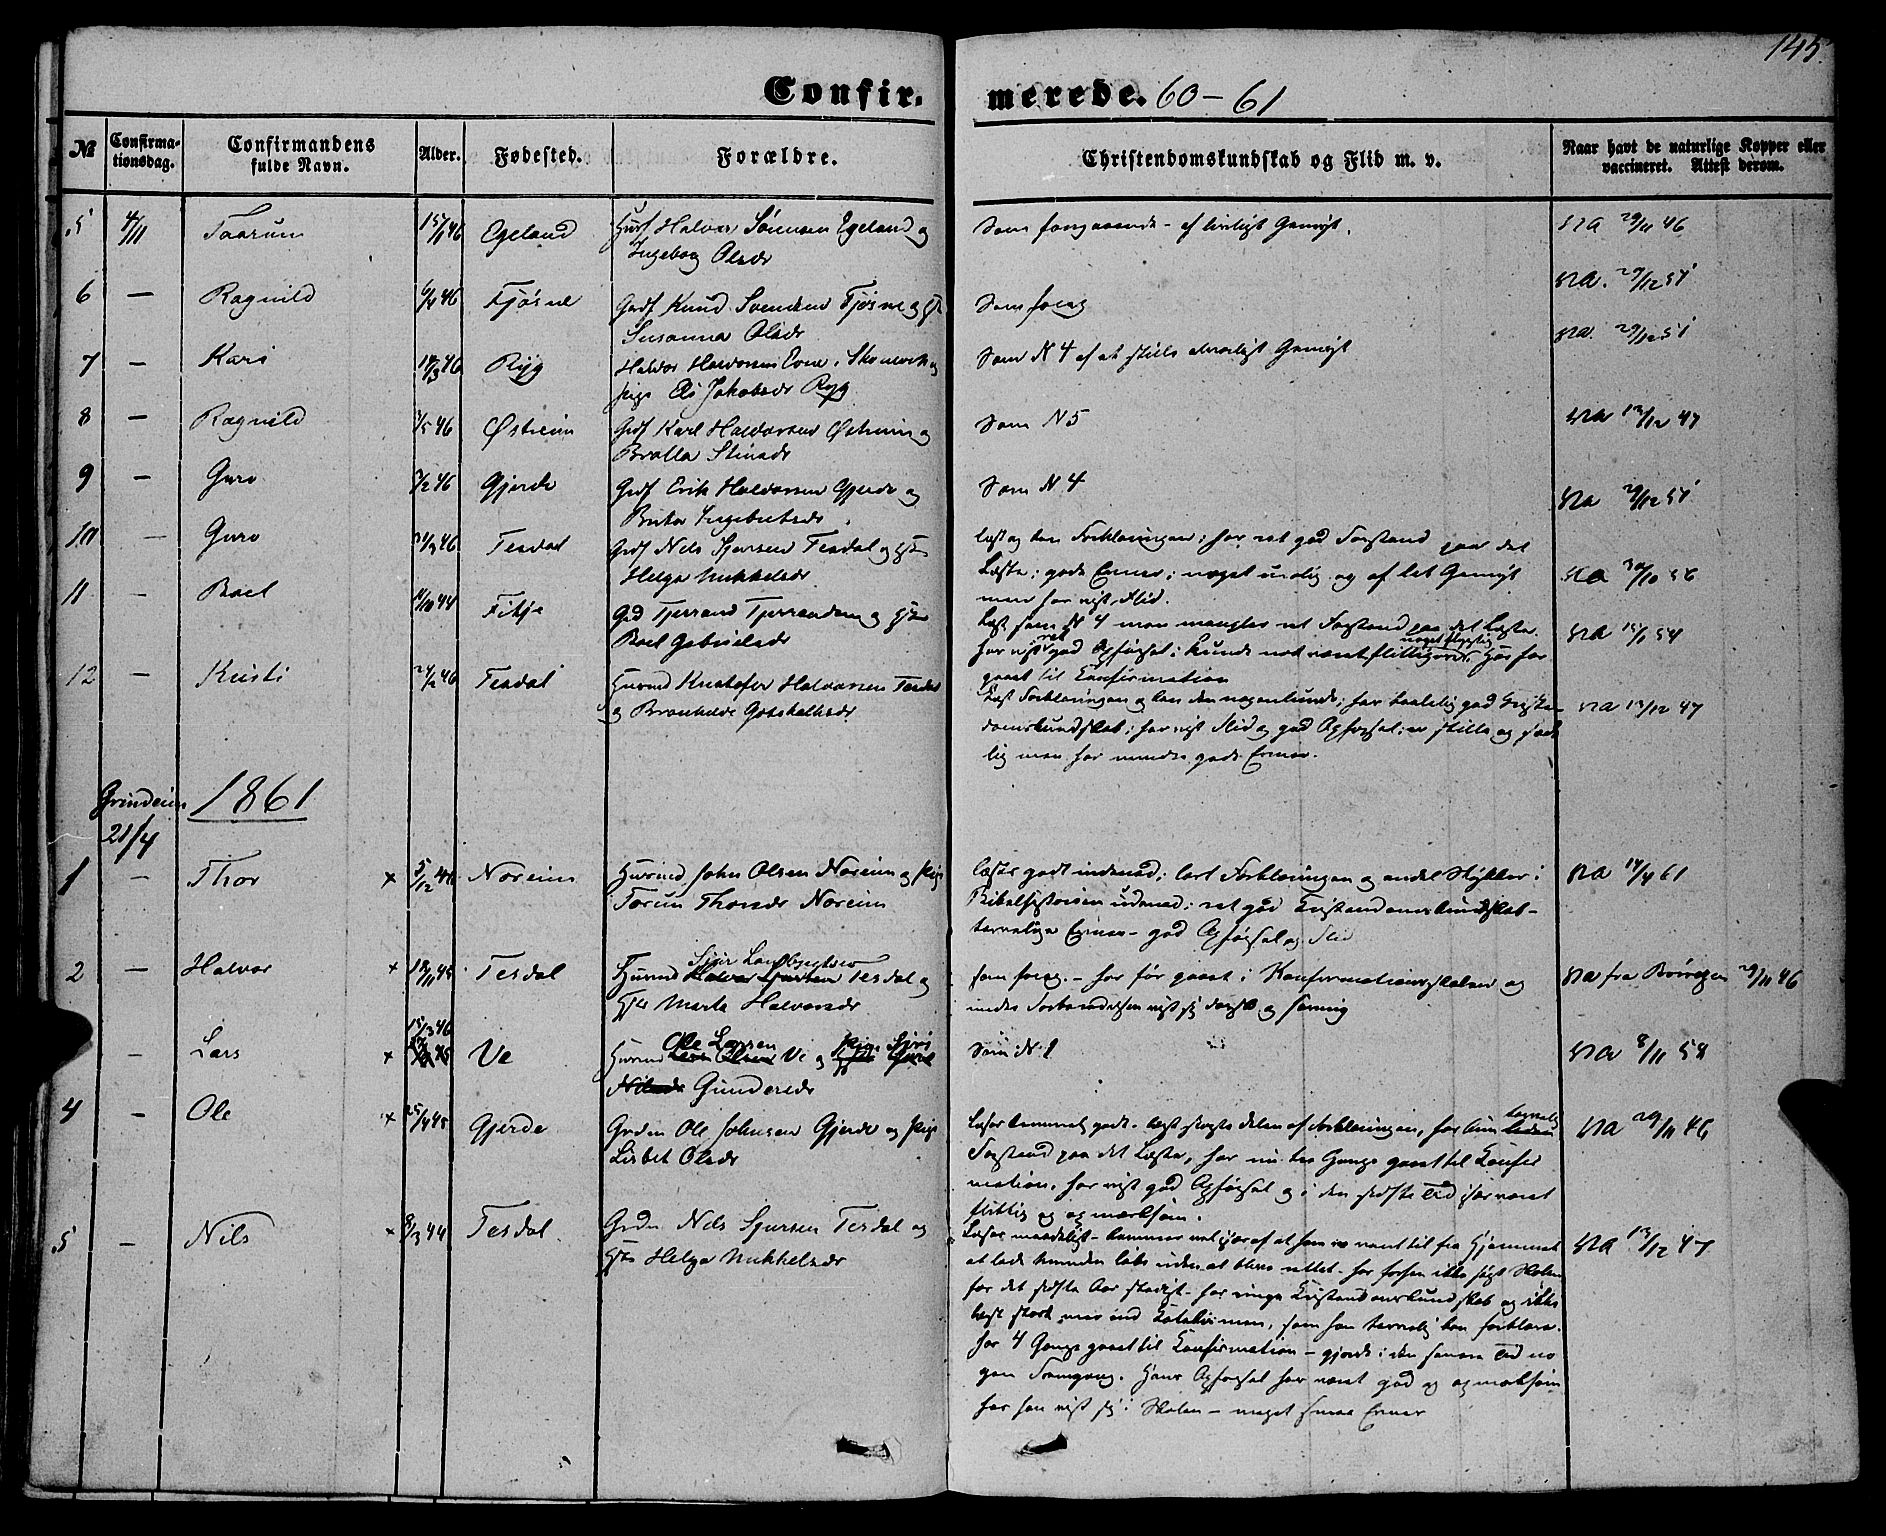 145
Confirmerede. 60-61
№ Confirmationsdag. Confirmandens fulde Navn. Alder. Fødested. Forældre. Christendomskundskab og Flid m. v. Naar havt de naturlige Kopper eller vaccineret. Attest derom.
5 4/11 Taarun 15/1 46 Egeland Husf Halvor Sørensen Egeland og
Ingeborg Olsdr
Som foregaaende - af livligt Gemyt. Va 29/11 46
6 — Ragnild 6/4 46 Fjøsne Grdf Knud Svendsen Fjøsne og Hst
Susanna Olsdr
Som foreg Va. 29/12 51
7 — Kari 18/3 46 Ryg Halvor Halvorsen Evne i Skonevik og
Pige Ås Jakobsdr Ryg
Som N 4 af et stille alvorligt Gemyt Va. 29/12 51
8 — Ragnild 3/5 46 Østreim Grdf Karl Halvorsen Østreim og
Brolla Stinesdr
Som N 5 Va 13/12 47
9 — Guro 3/2 46 Gjerde Grdf Erik Halvorsen Gjerde og
Brita Ingebretsdr.
Som N 4 Va 29/12 51
10 — Guro 21/3 46 Tesdal Grdf Nils Sjursen Tesdal og Hst
Helga Mikkelsdr
læst og kan Forklaringen; har ret god Forstand paa det
Læste; gode Evner; noget urolig og af let Gemyt
men har vist Flid.
Va 30/10 56
11 — Boel 14/10 44 Fikje Grd Tjerrand Tjerrandsen og Hst
Boel Gabrielsdr
Læst som N 4 men mangler ret Forstand paa det Læste.
har vist ret god Opførsel; kunde nok været flittigere noget. Har før
gaaet til Konfirmation
Va 15/1 54
12 — Kristi 24/2 46 Tesdal Husmd Kristofer Halvorsen Tesdal
og Bronhilde Gotskalksdr
Læst Forklaringen og kan den nogenlunde; har taalelig god Kristen-
domskundskab; har vist Flid og god Opførsel; er stille og sæde-
lig men har mindre gode Evner.
Va 13/12 47
Grindeim 1861
21/4
1 — Thor × 5/12 46 Noreim Husmd John Olsen Noreim og Pige
Torun Thorsdr Noreim
læser godt indenad; lært Forklaringen og endel Stykker i
Bibelhistorien udenad; ret god Kristendomskundskab -
temmelige Evner - god Opførsel og Flid
Va 14/4 61
2 — Halvor × 18/11 45 Tesdal Husmd Halvor Sjursen Tesdal og
Hst Marta Halvorsdr
som foreg. - har før gaaet i Konfirmationsskolen og
under Forberedelsen vist sig
Va fra 29/11 46
— Lars 15/3 46 × Ve Husmd Ole Larsen Ve og Pige Siri
Gundersdr
Som N. 1 Va 8/11 58
4 — Ole × 25/4 45 Gjerde Grdm Ole Johnsen Gjerde og Pige
Lisbet Olsdr
Læser temmelig godt - læst største delen af Forklaringen, har kun
Forstand paa det Læste, har nu tre Gange gaaet til Konfir
mation, har vist god Opførsel og i den sidste Tid især været
flittig og opmærksom.
Va 29/11 46
5 — Nils × 8/3 44 Tesdal Grdm Nils Sjursen Tesdal og
Hst Helga Mikkelsdr
Læser maadeligt - kommer vel især af at han er vant til fra Hjemmet
at lade Munden løbe uden at blive rettet - har forsen ikke søgt Skolen
før det sidste Aar stadigt - har ringe Kristendomskundskab og ikke
læst stort mer end Katekismen, som han temmelig kan forklare.
har 4 Gange gaaet til Konfirmation - gjorde i den senere Tid no
gen Fremgang. Hans Opførsel har været god og opmærksom
har han vist sig i Skolen - meget smaa Evner
Va 13/12 47